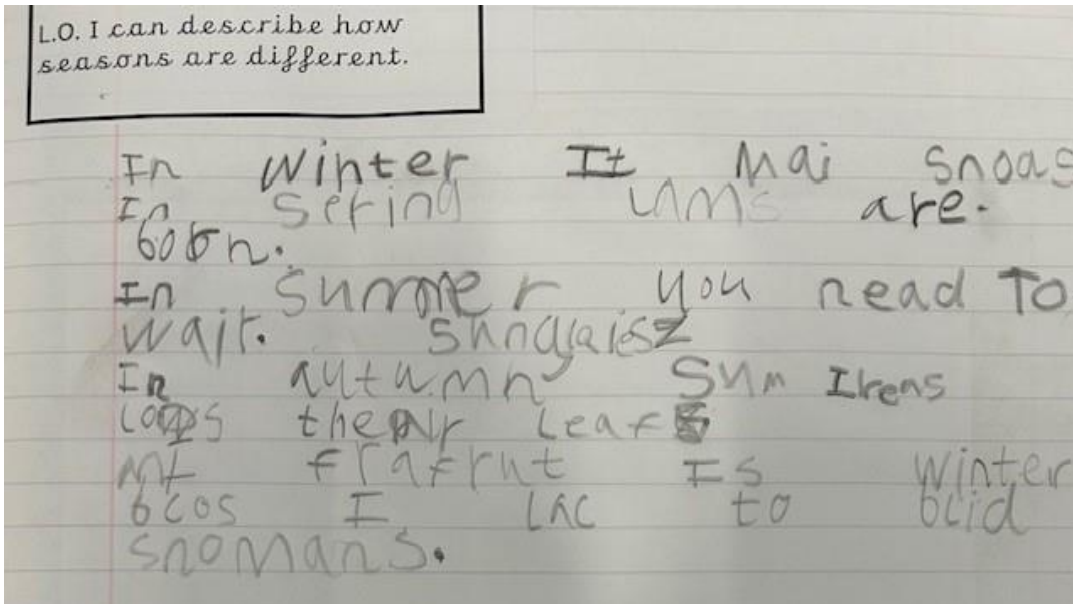 L.O. I can describe how
seasons are different.
In winter It mai snoas
In sering are.
born.
In summer you nead To
wait. sungaisz
In autumn sum Irens
loops their leafs
mt frafrut Is winter
bcos I lac to blid
snomans.